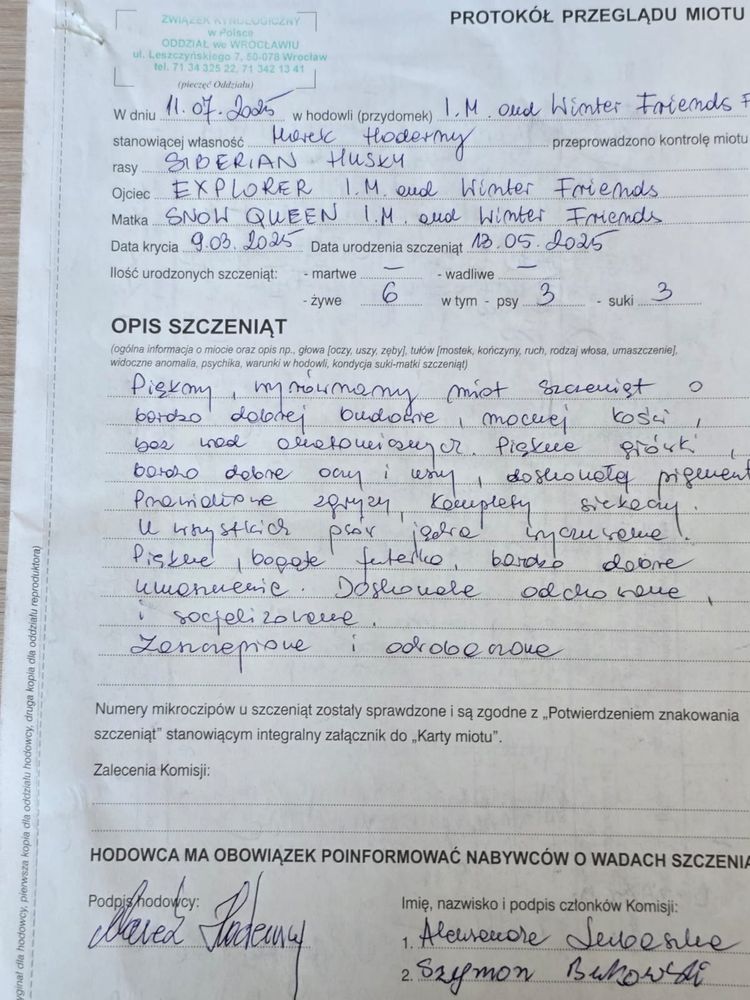 PROTOKÓŁ PRZEGLĄDU MIOTU
ZWIĄZEK KYNOLOGICZNY
w Polsce
ODDZIAŁ we WROCŁAWIU
ul. Leszczyńskiego 7, 50-078 Wrocław
tel. 71 34 325 22, 71 342 13 41
(pieczęć Oddziału)
W dniu 11.07.2025 w hodowli (przydomek) I.M. and Winter Friends F
stanowiącej własność Marek Hoderny przeprowadzono kontrolę miotu
rasy SIBERIAN HUSKY
Ojciec EXPLORER I.M. and Winter Friends
Matka SNOW QUEEN I.M. and Winter Friends
Data krycia 9.03.2025 Data urodzenia szczeniąt 13.05.2025
Ilość urodzonych szczeniąt: - martwe — - wadliwe —
- żywe 6 w tym - psy 3 - suki 3
OPIS SZCZENIĄT
(ogólna informacja o miocie oraz opis np., głowa [oczy, uszy, zęby], tułów [mostek, kończyny, ruch, rodzaj włosa, umaszczenie],
widoczne anomalia, psychika, warunki w hodowli, kondycja suki-matki szczeniąt)
Piękny, wyrównany miot szczeniąt o
bardzo dobrej budowie, mocnej kości,
bez wad anatomicznych. Piękne główki,
bardzo dobre oczy i uszy, doskonały pigment
Prawidłowe zgryzy, komplety siekaczy.
U wszystkich psów jądra wyczuwalne.
Piękne, bogate futerko, bardzo dobre
umaszczenie. Doskonale odchowane,
i socjalizowane.
Zaszczepione i odrobaczone
Numery mikroczipów u szczeniąt zostały sprawdzone i są zgodne z „Potwierdzeniem znakowania
szczeniąt” stanowiącym integralny załącznik do „Karty miotu”.
Zalecenia Komisji:
HODOWCA MA OBOWIĄZEK POINFORMOWAĆ NABYWCÓW O WADACH SZCZENIĄ
Podpis hodowcy:
Marek Hoderny
Imię, nazwisko i podpis członków Komisji:
1. Aleksandra
2. Szymon Bukowski
oryginał dla hodowcy, pierwsza kopia dla oddziału hodowcy, druga kopia dla oddziału reproduktora)